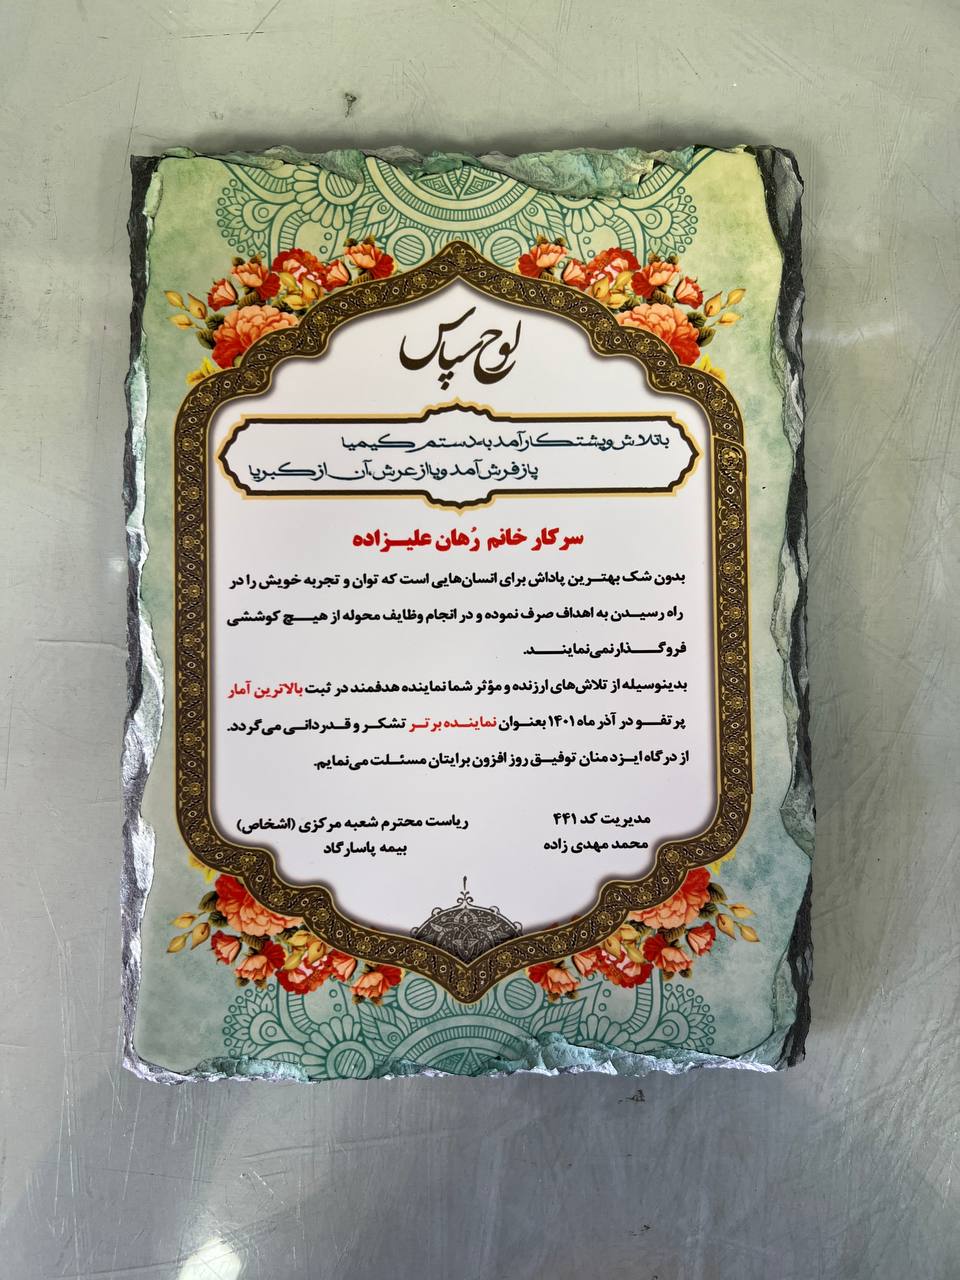 لوح سپاس
با تلاش و پشتکار آمد به دستم کیمیا
پا ز فرش آمد ویا از عرش، آن از کبریا
سرکار خانم رُهان علیزاده
بدون شک بهترین پاداش برای انسان‌هایی است که توان و تجربه خویش را در
راه رسیدن به اهداف صرف نموده و در انجام وظایف محوله از هیچ کوششی
فروگذار نمی‌نمایند.
بدینوسیله از تلاش‌های ارزنده و مؤثر شما نماینده هدفمند در ثبت بالاترین آمار
پرتفو در آذر ماه ۱۴۰۱ بعنوان نماینده برتر تشکر و قدردانی می‌گردد.
از درگاه ایزد منان توفیق روز افزون برایتان مسئلت می‌نمایم.
مدیریت کد ۴۴۱
محمد مهدی زاده
ریاست محترم شعبه مرکزی (اشخاص)
بیمه پاسارگاد